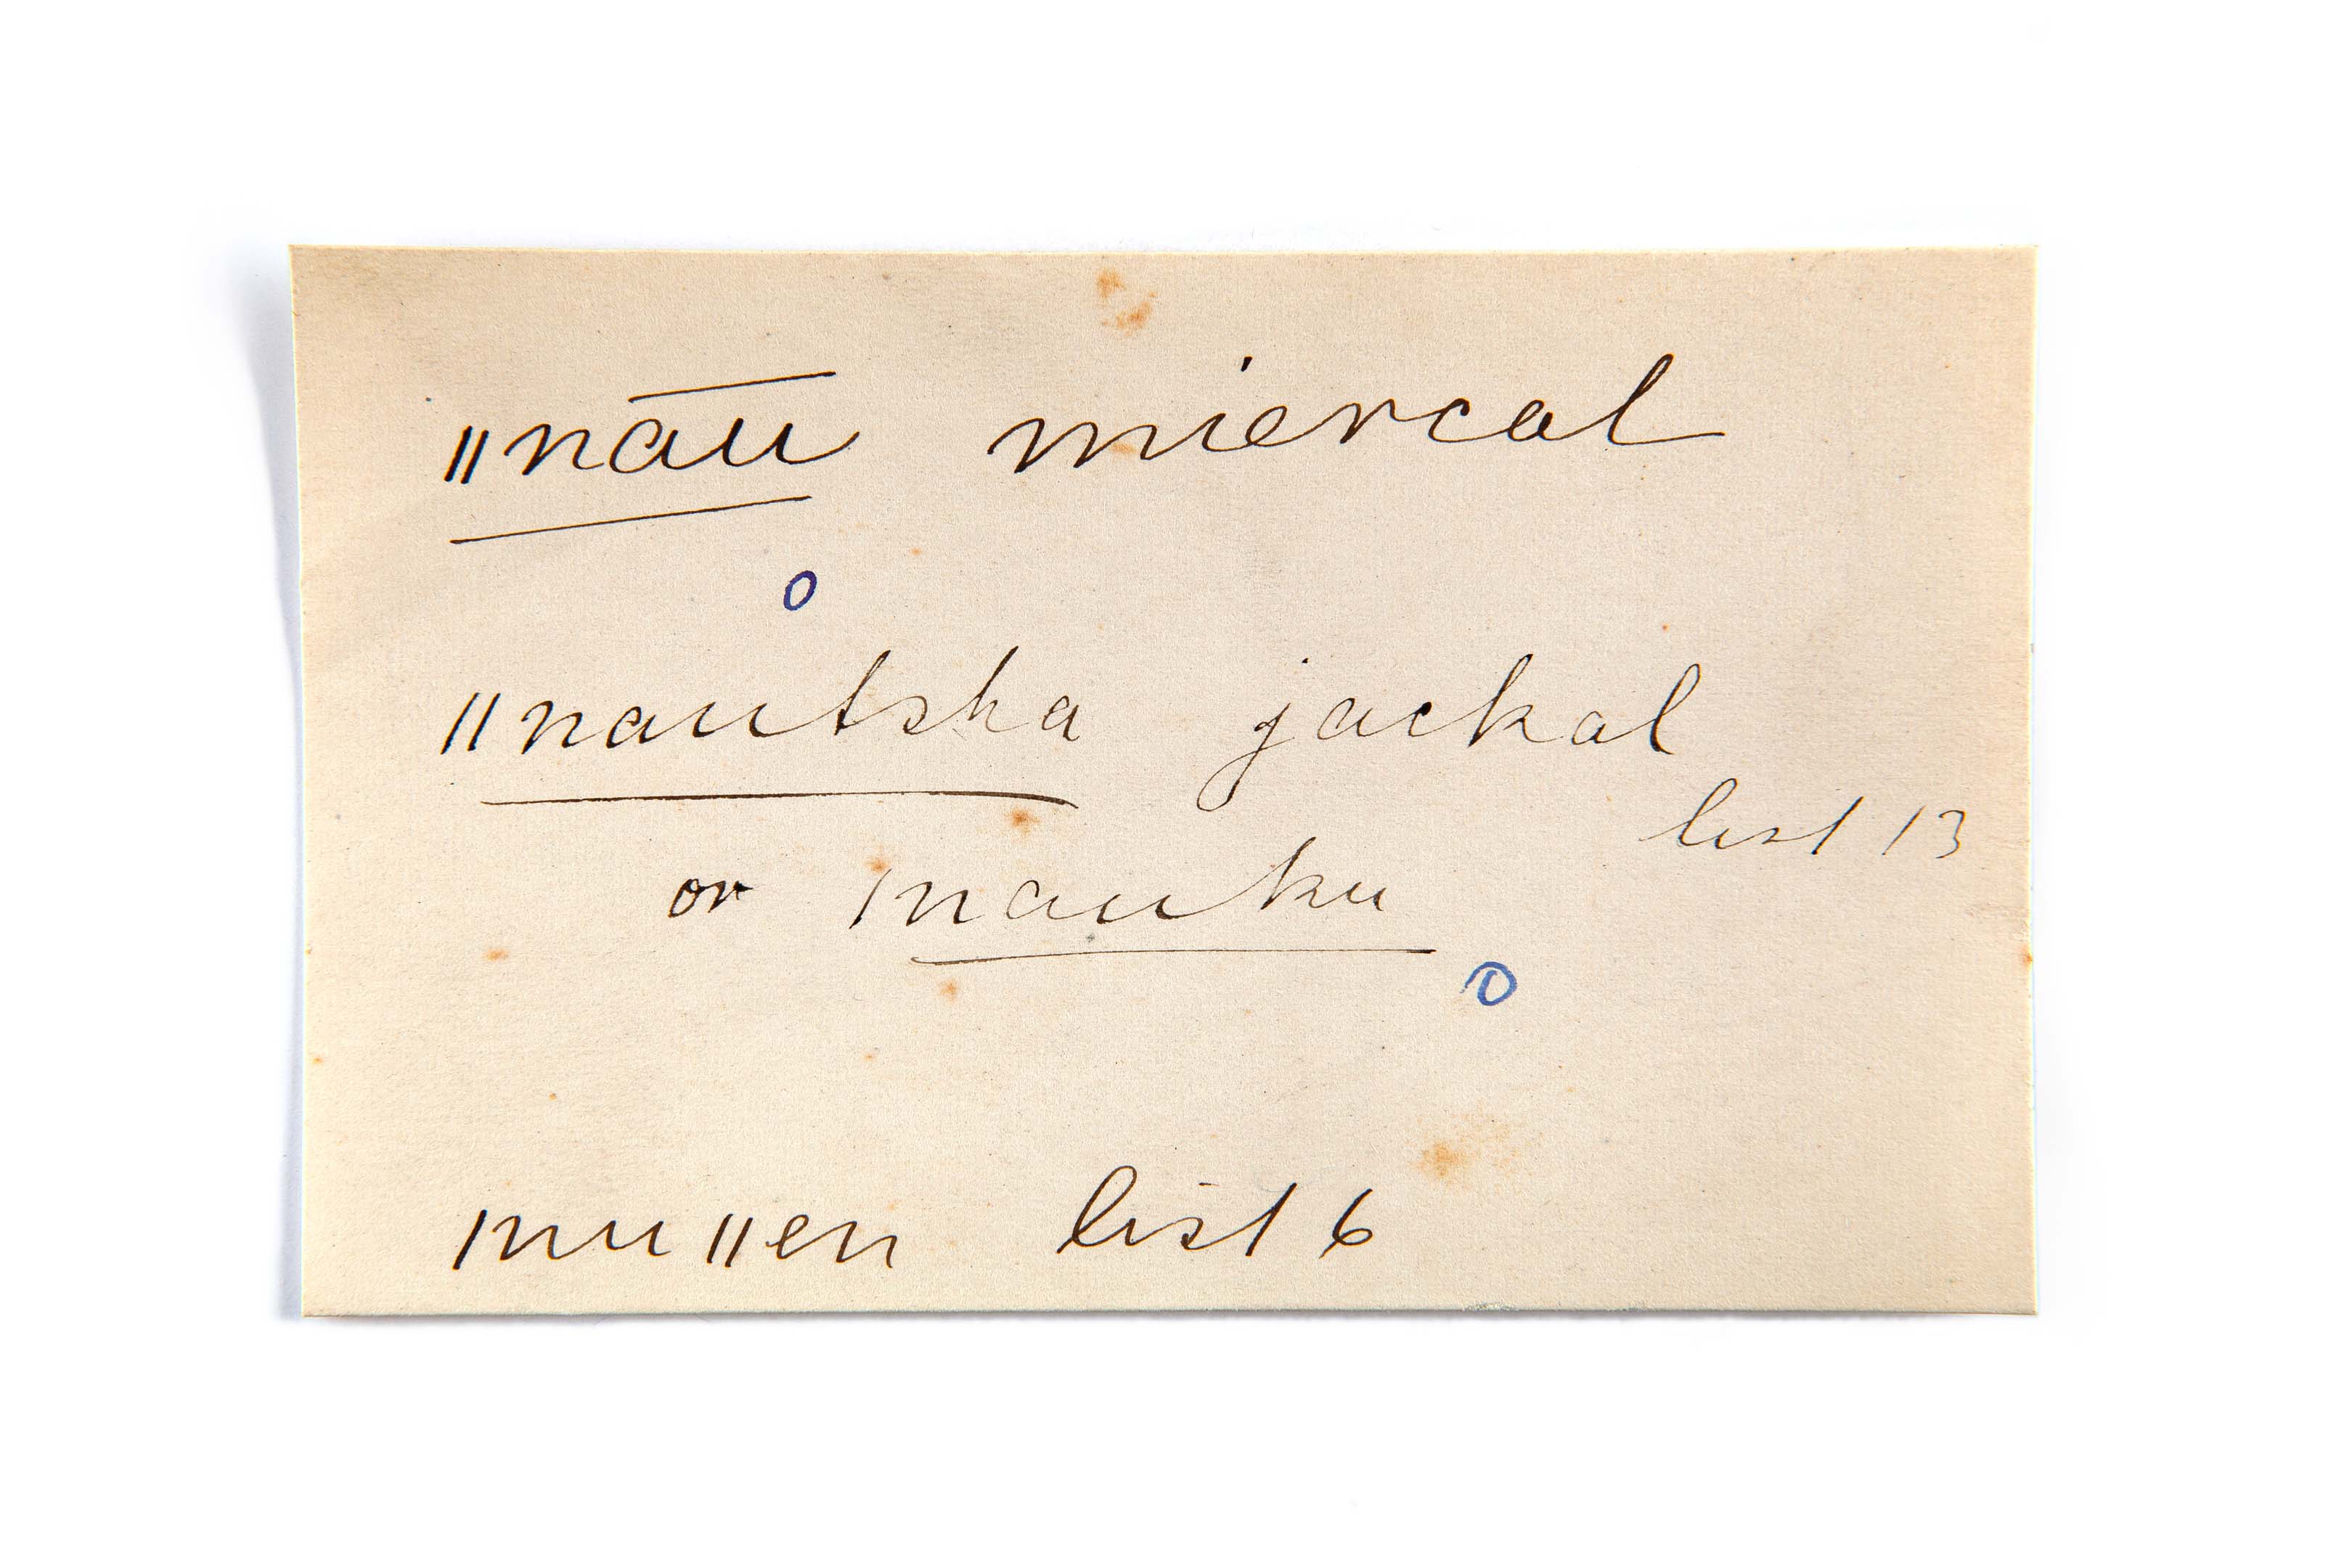 ǁnāū miercal
o
ǁnautsha jackal
list 13
or ǀnauku
o
ǀnuǁen list 6